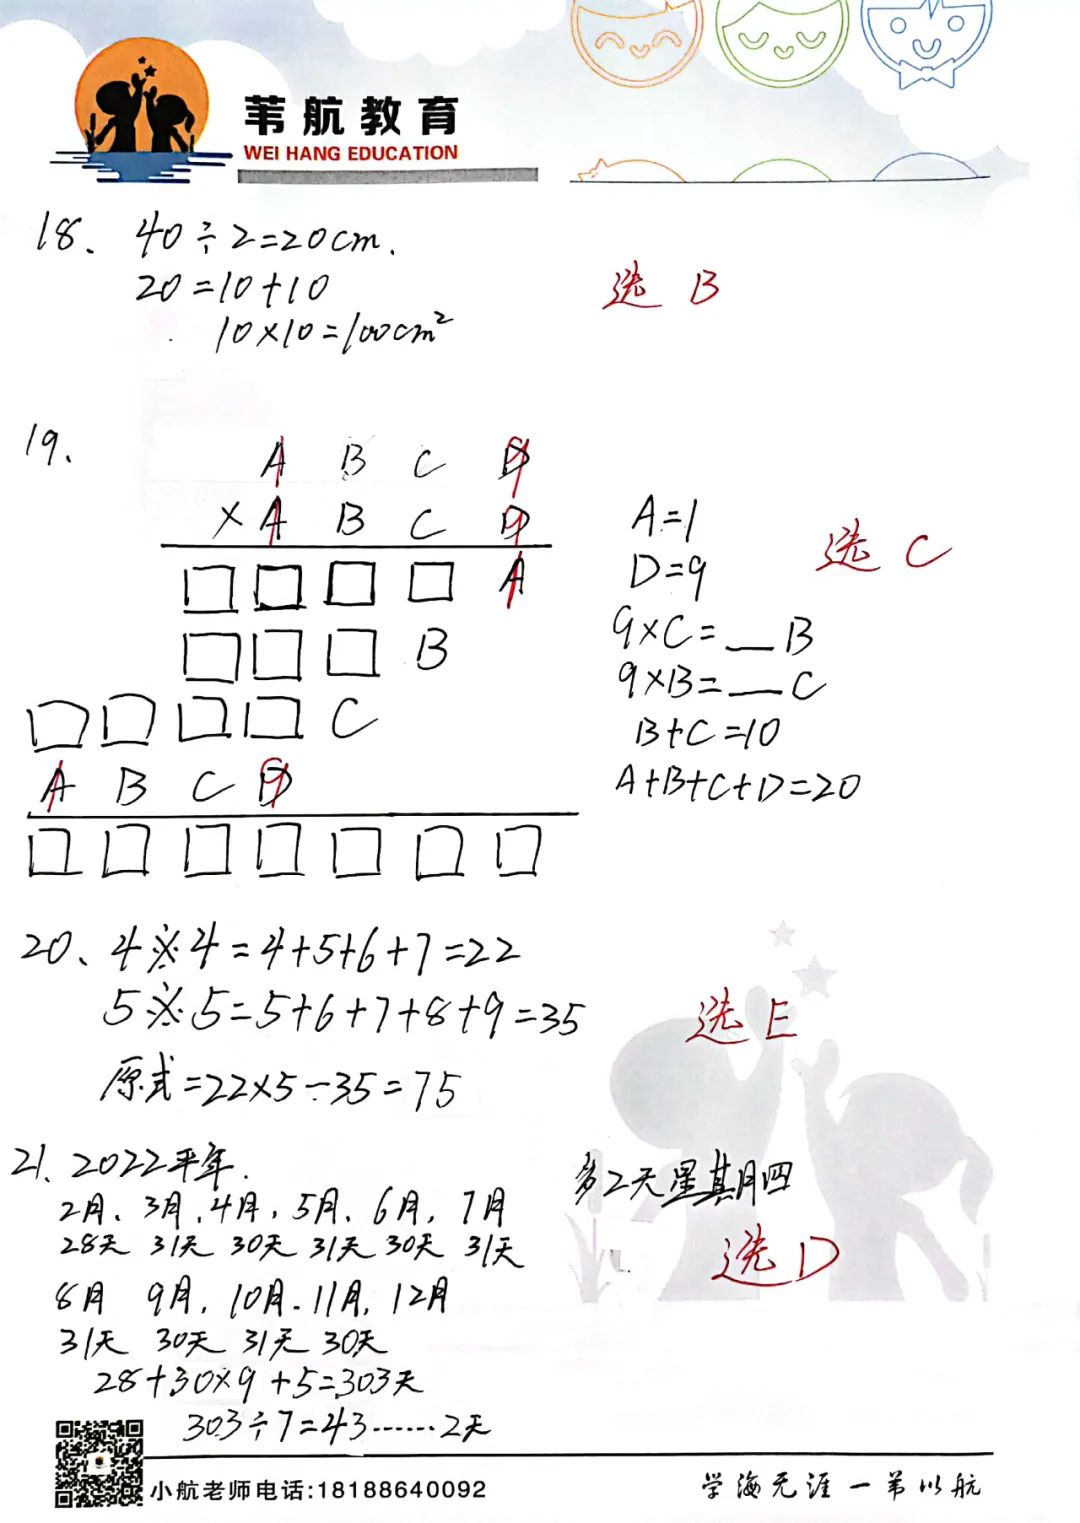 苇航教育
WEI HANG EDUCATION
18、 40÷2=20cm.
20=10+10
10×10=100cm²
选 B
19、
A B C D
×A B C D
□ □ □ □ A
□ □ □ B
□ □ □ □ C
A B C D
□ □ □ □ □ □ □
A=1
D=9
9×C=__B
9×B=__C
B+C=10
A+B+C+D=20
选 C
20、4※4=4+5+6+7=22
5※5=5+6+7+8+9=35
原式=22×5-35=75
选E
21、2022平年.
2月、3月、4月、5月、6月、7月
28天 31天 30天 31天 30天 31天
8月 9月、10月、11月、12月
31天 30天 31天 30天
28+30×9+5=303天
303÷7=43……2天
多2天星期四
选D
小航老师电话:18188640092
学海无涯一苇以航